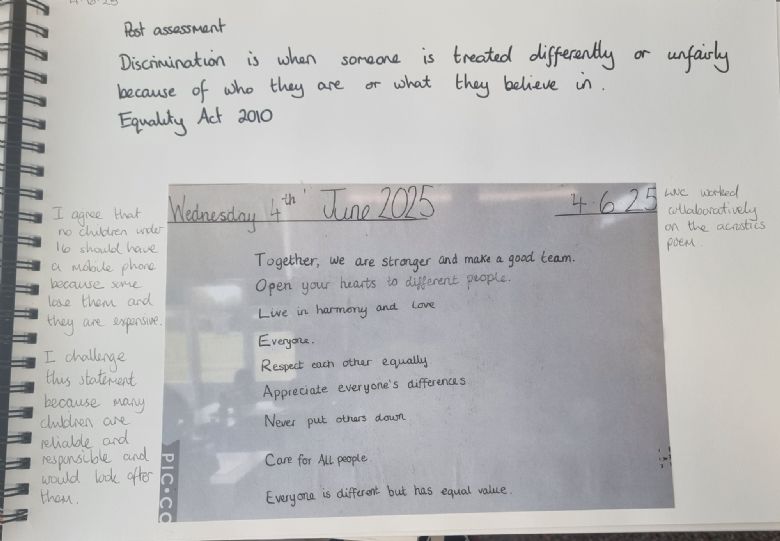 4.6.25
Post assessment
Discrimination is when someone is treated differently or unfairly
because of who they are or what they believe in.
Equality Act 2010
I agree that
no children under
16 should have
a mobile phone
because some
lose them and
they are expensive.
I challenge
this statement
because many
children are
reliable and
responsible and
would look after
them.
Wednesday 4th June 2025
4.6.25
Together, we are stronger and make a good team.
Open your hearts to different people.
Live in harmony and love
Everyone.
Respect each other equally
Appreciate everyone's differences
Never put others down
Care for All people.
Everyone is different but has equal value.
PIC•CO
worked
collaboratively
on the acrostics
poem.